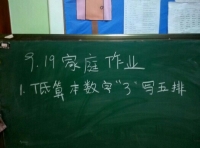 9.19.家庭作业
1.作算本数字"3"写五排